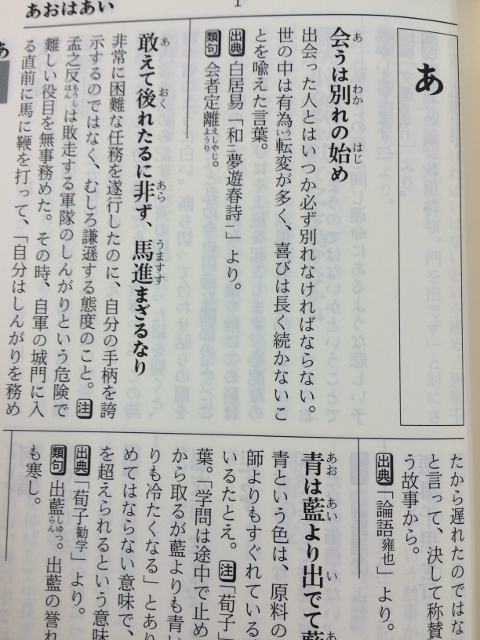 あおはあい
1
あ
会うは別れの始め
出会った人とはいつか必ず別れなければならない。
世の中は有為転変が多く、喜びは長く続かないこ
とを喩えた言葉。
出典 白居易「和二夢遊春詩一」より。
類句 会者定離。
敢えて後れたるに非ず、馬進まざるなり
非常に困難な任務を遂行したのに、自分の手柄を誇
示するのではなく、むしろ謙遜する態度のこと。注
孟之反は敗走する軍隊のしんがりという危険で
難しい役目を無事務めた。その時、自軍の城門に入
る直前に馬に鞭を打って、「自分はしんがりを務め
たから遅れたのではな
と言って、決して称賛
う故事から。
出典 「論語雍也」より。
青は藍より出でて藍
青という色は、原料の
師よりもすぐれている
いるたとえ。注「荀子」
葉。「学問は途中で止め
から取るが藍よりも青い
りも冷たくなる」とあり
めてはならない意味で、
を超えられるという意味
出典 「荀子勧学」より。
類句 出藍。出藍の誉れ
も寒し。